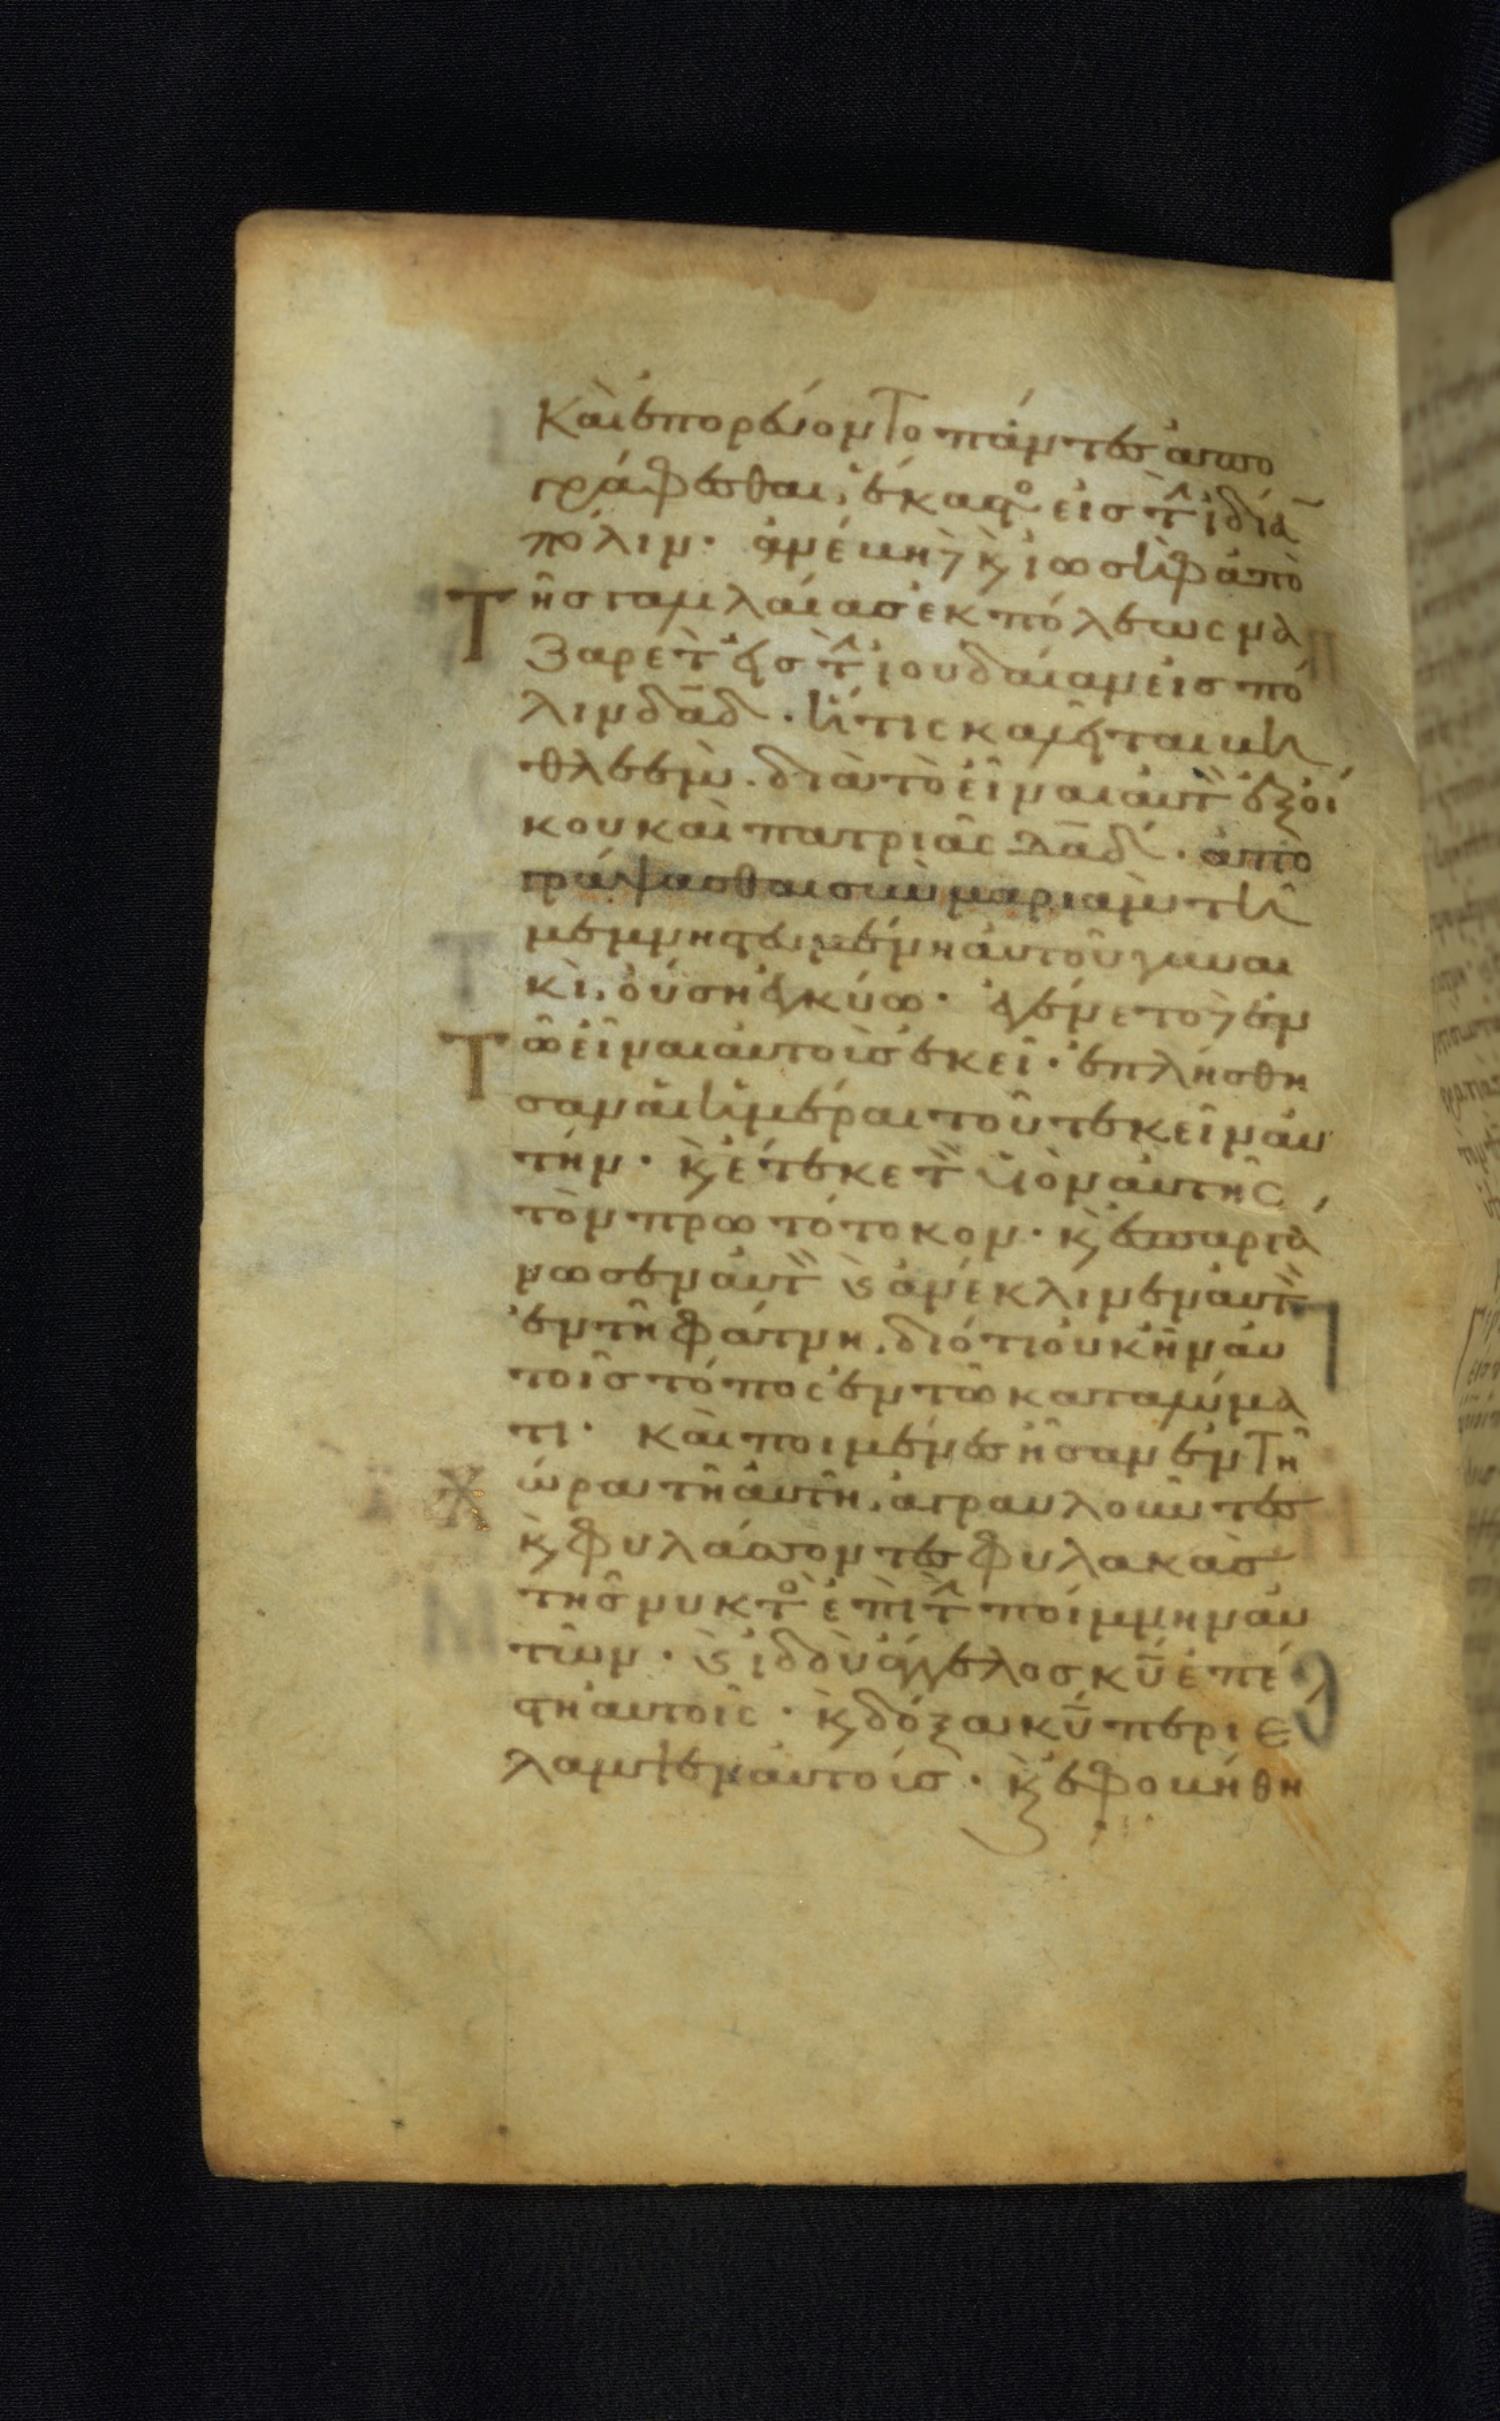 Καὶ ἐπορεύοντο πάντες ἀπο
γράφεσθαι, ἕκαστος εἰς τὴν ἰδίαν
πόλιν· ἀνέβη δὲ κ(αὶ) ἰωσὴφ ἀπὸ
Τῆς γαλιλαίας ἐκ πόλεως να
ζαρὲτ εἰς τὴν ἰουδαίαν εἰς πό
λιν δα̅δ· ἥτις καλεῖται βη
θλεὲμ· διὰ τὸ εἶναι αὐτὸν ἐξ οἴ
κου καὶ πατριᾶς δα̅δ· ἀπο
γράψασθαι σὺν μαριὰμ τῆ
μεμνηστευμένη αὐτοῦ γυναι
κὶ, οὔση ἐγκύω· ἐγένετο δὲ ἐν
Τῶ εἶναι αὐτοὺς ἐκεῖ· ἐπλήσθη
σαν αἱ ἡμέραι τοῦ τεκεῖν αὐ
τήν· κ(αὶ) ἔτεκε τὸν υἱὸν αὐτῆς
τὸν πρωτότοκον· κ(αὶ) ἐσπαργά
νωσεν αὐτὸν κ(αὶ) ἀνέκλινεν αὐτὸν
ἐν τῆ φάτνη, διότι οὐκ ἦν αὐ
τοῖς τόπος ἐν τῶ καταλύμα
τι· καὶ ποιμένες ἦσαν ἐν τῆ
η̅ Χώρα τῆ αὐτῆ, ἀγραυλοῦντες
κ(αὶ) φυλάσσοντες φυλακὰς
τῆς νυκτὸς ἐπὶ τὴν ποίμνην αὐ
τῶν· κ(αὶ) ἰδοὺ ἄγγελος κ̅υ̅ ἐπέ
στη αὐτοῖς· κ(αὶ) δόξα κ̅υ̅ περιέ
λαμψεν αὐτοὺς· κ(αὶ) ἐφοβήθη